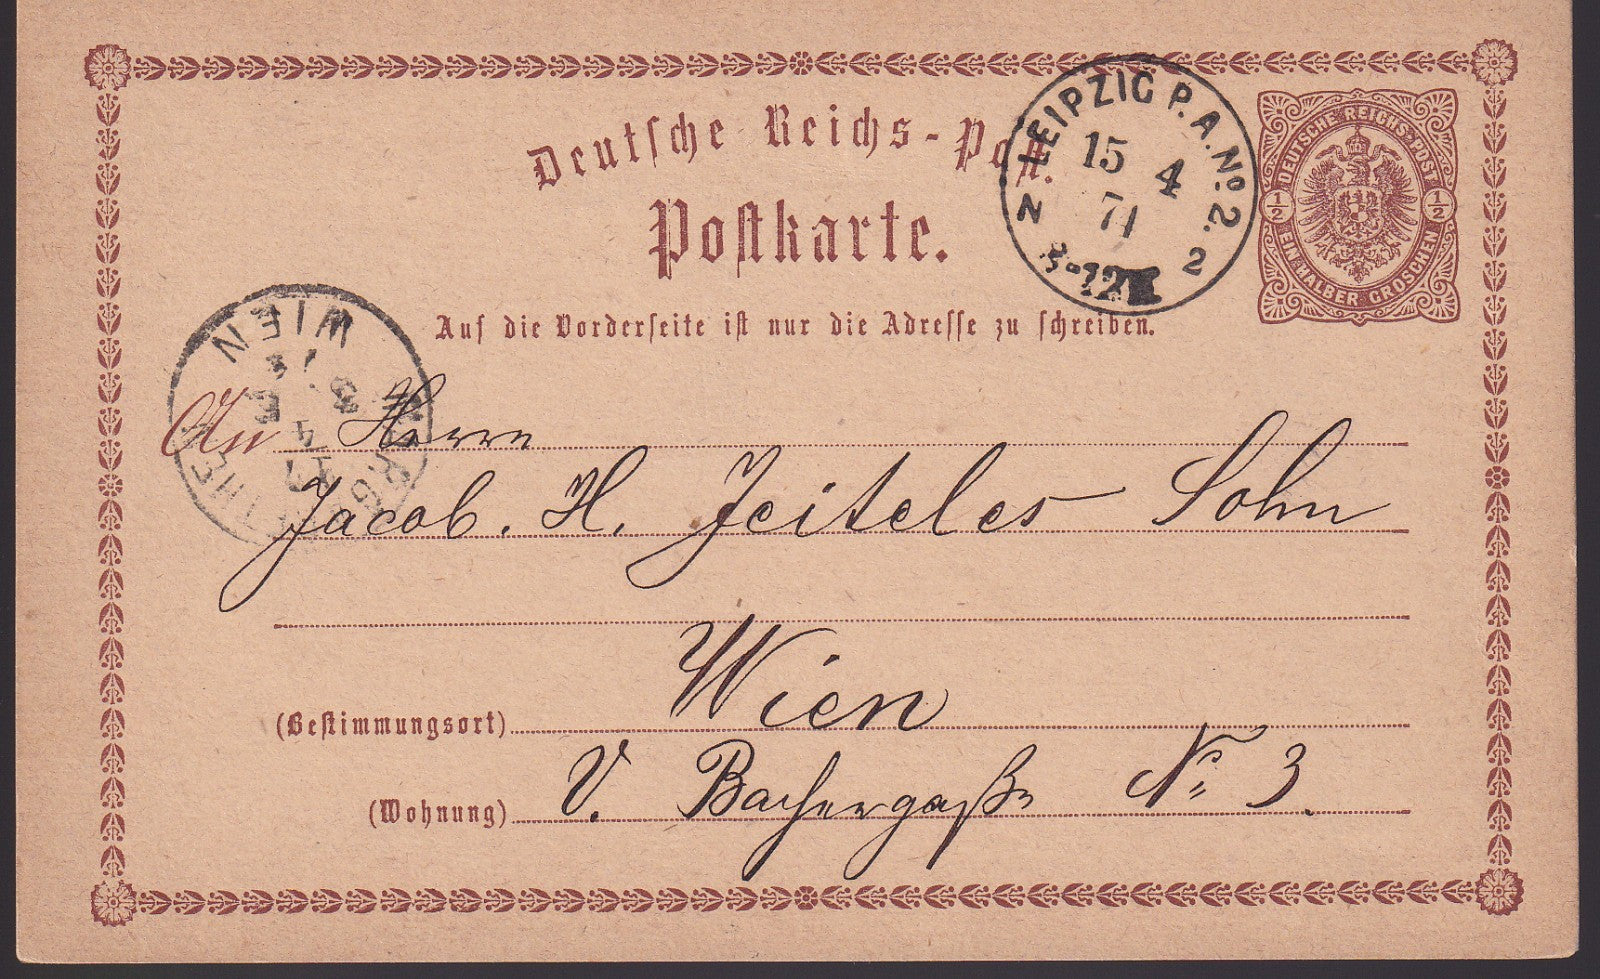 Deutsche Reichs-Post.
Postkarte.
Auf die Vorderseite ist nur die Adresse zu schreiben.
LEIPZIG P.A.No.2.
15 4
71
2
DEUTSCHE REICHS-POST
½ ½
EIN HALBER GROSCHEN
WIEN
17
4
An Herrn
Jacob. H. Jeiteles Sohn
(Bestimmungsort) Wien
(Wohnung) V. Bachergaße No 3.